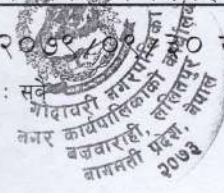 २०७९/०९/२०
: सर्व
गोदावरी नगरपालिका
नगर कार्यपालिकाको कार्यालय
बज्रवाराही, ललितपुर
बागमती प्रदेश, नेपाल
२०७३